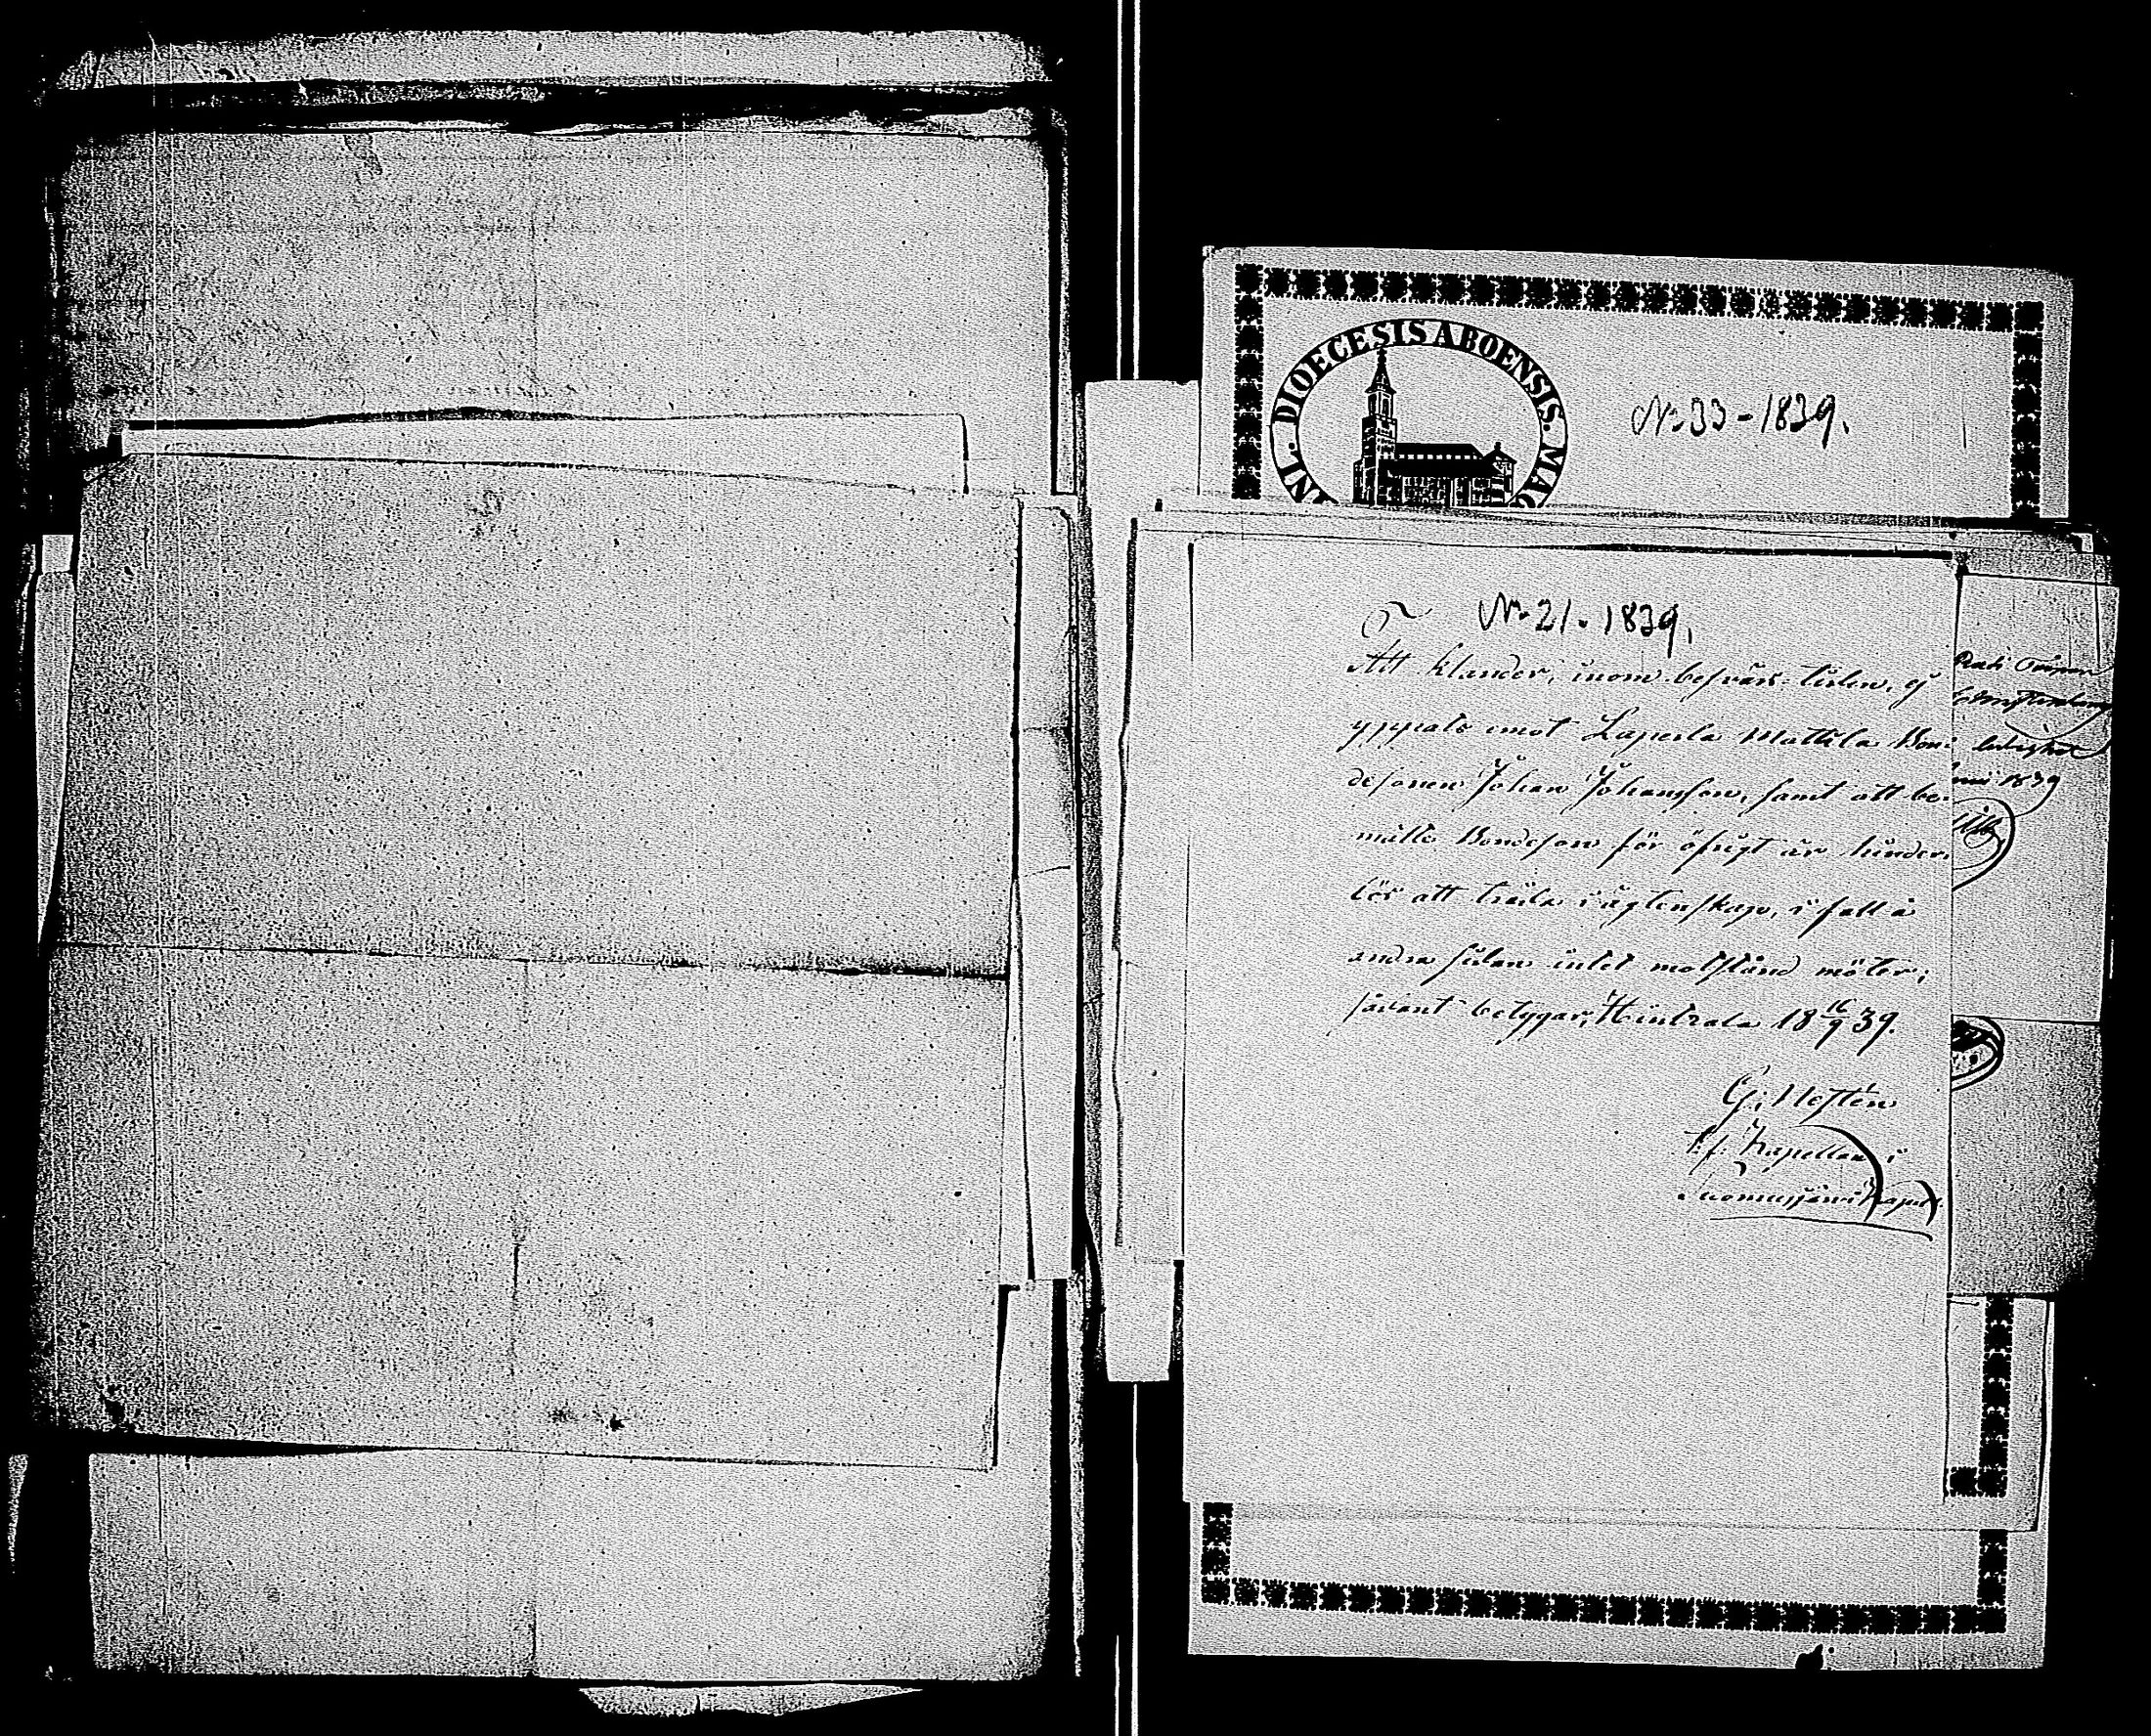 INI. DIOECESIS ABOENSIS. MAG
No 33-1839.
No 21. 1839.
Att klander, inom besvärs-tiden, ej
yppats emot Laperla Mattila Bon-
desonen Johan Johansson, samt att be-
mälte Bondeson för öfrigt är hinder-
lös att träda i ägtenskap, i fall å
andra sidan intet motstånd möter;
sådant betygar, Hintzala 18 16/9 39.
G:
t.f. Kapellan i
Suomusjärvi Kapell.
1839